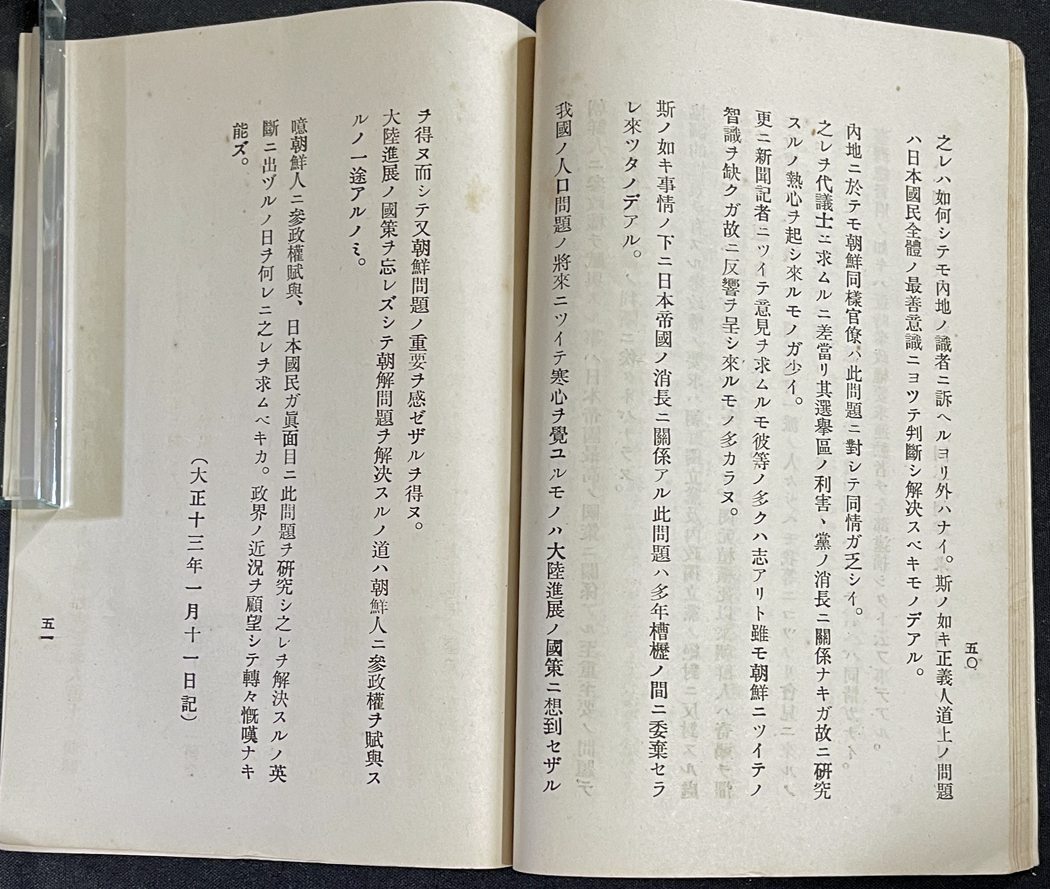 之レハ如何シテモ內地ノ識者ニ訴ヘルヨリ外ハナイ。斯ノ如キ正義人道上ノ問題
ハ日本國民全體ノ最善意識ニヨツテ判斷シ解決スベキモノデアル。
內地ニ於テモ朝鮮同樣官僚ハ此問題ニ對シテ同情ガ乏シイ。
之レヲ代議士ニ求ムルニ差當リ其選擧區ノ利害、黨ノ消長ニ關係ナキガ故ニ硏究
スルノ熱心ヲ起シ來ルモノガ少イ。
更ニ新聞記者ニツイテ意見ヲ求ムルモ彼等ノ多クハ志アリト雖モ朝鮮ニツイテノ
智識ヲ缺クガ故ニ反響ヲ呈シ來ルモノ多カラヌ。
斯ノ如キ事情ノ下ニ日本帝國ノ消長ニ關係アル此問題ハ多年槽櫪ノ間ニ委棄セラ
レ來ツタノデアル。
我國ノ人口問題ノ將來ニツイテ寒心ヲ覺ユルモノハ大陸進展ノ國策ニ想到セザル
五〇
ヲ得ヌ而シテ又朝鮮問題ノ重要ヲ感ゼザルヲ得ヌ。
大陸進展ノ國策ヲ忘レズシテ朝解問題ヲ解決スルノ道ハ朝鮮人ニ參政權ヲ賦與ス
ルノ一途アルノミ。
噫朝鮮人ニ參政權賦與、日本國民ガ眞面目ニ此問題ヲ硏究シ之レヲ解決スルノ英
斷ニ出ヅルノ日ヲ何レニ之レヲ求ムベキカ。政界ノ近況ヲ顧望シテ轉々慨嘆ナキ
能ズ。
(大正十三年一月十一日記)
五一